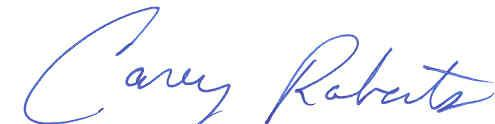 Carey Roberts